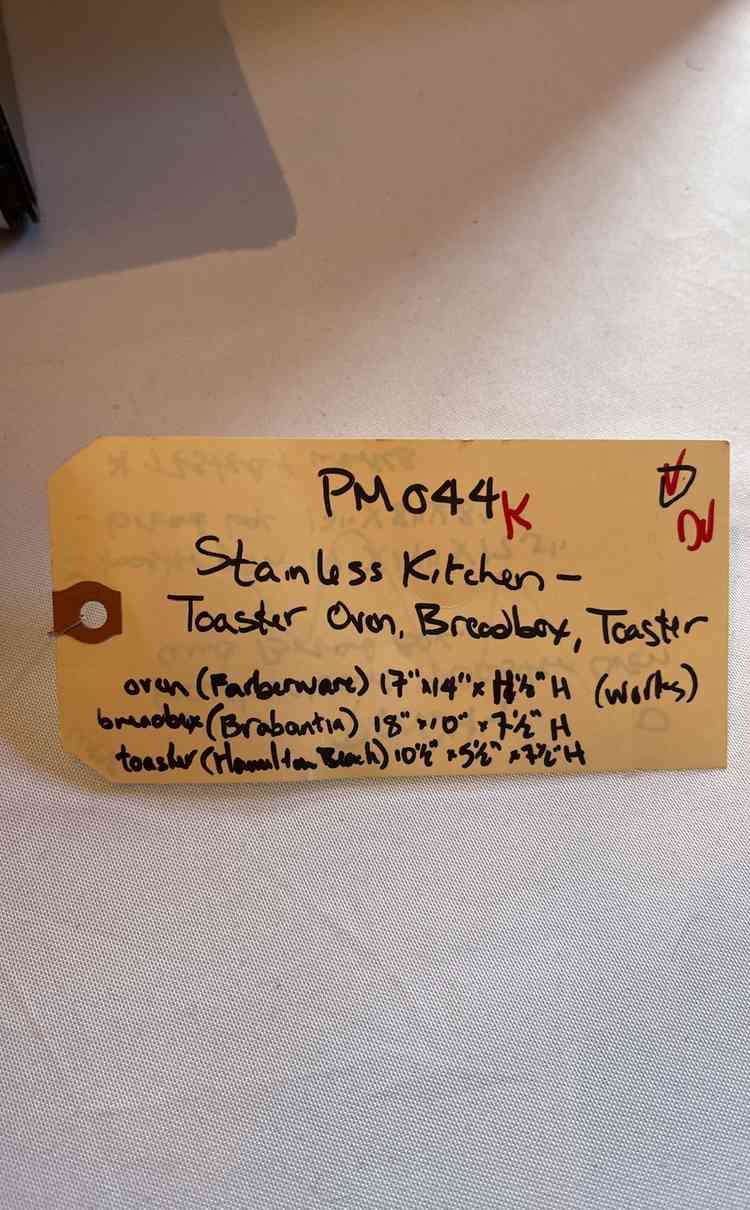 PM044K
DV
Stainless Kitchen -
Toaster Oven, Breadbox, Toaster
oven (Farberware) 17" x 14" x H (works)
breadbox (Brabantia) 18" x 10" x 7½" H
toaster (Hamilton Beach) 10½" x 5½" x 7½" H